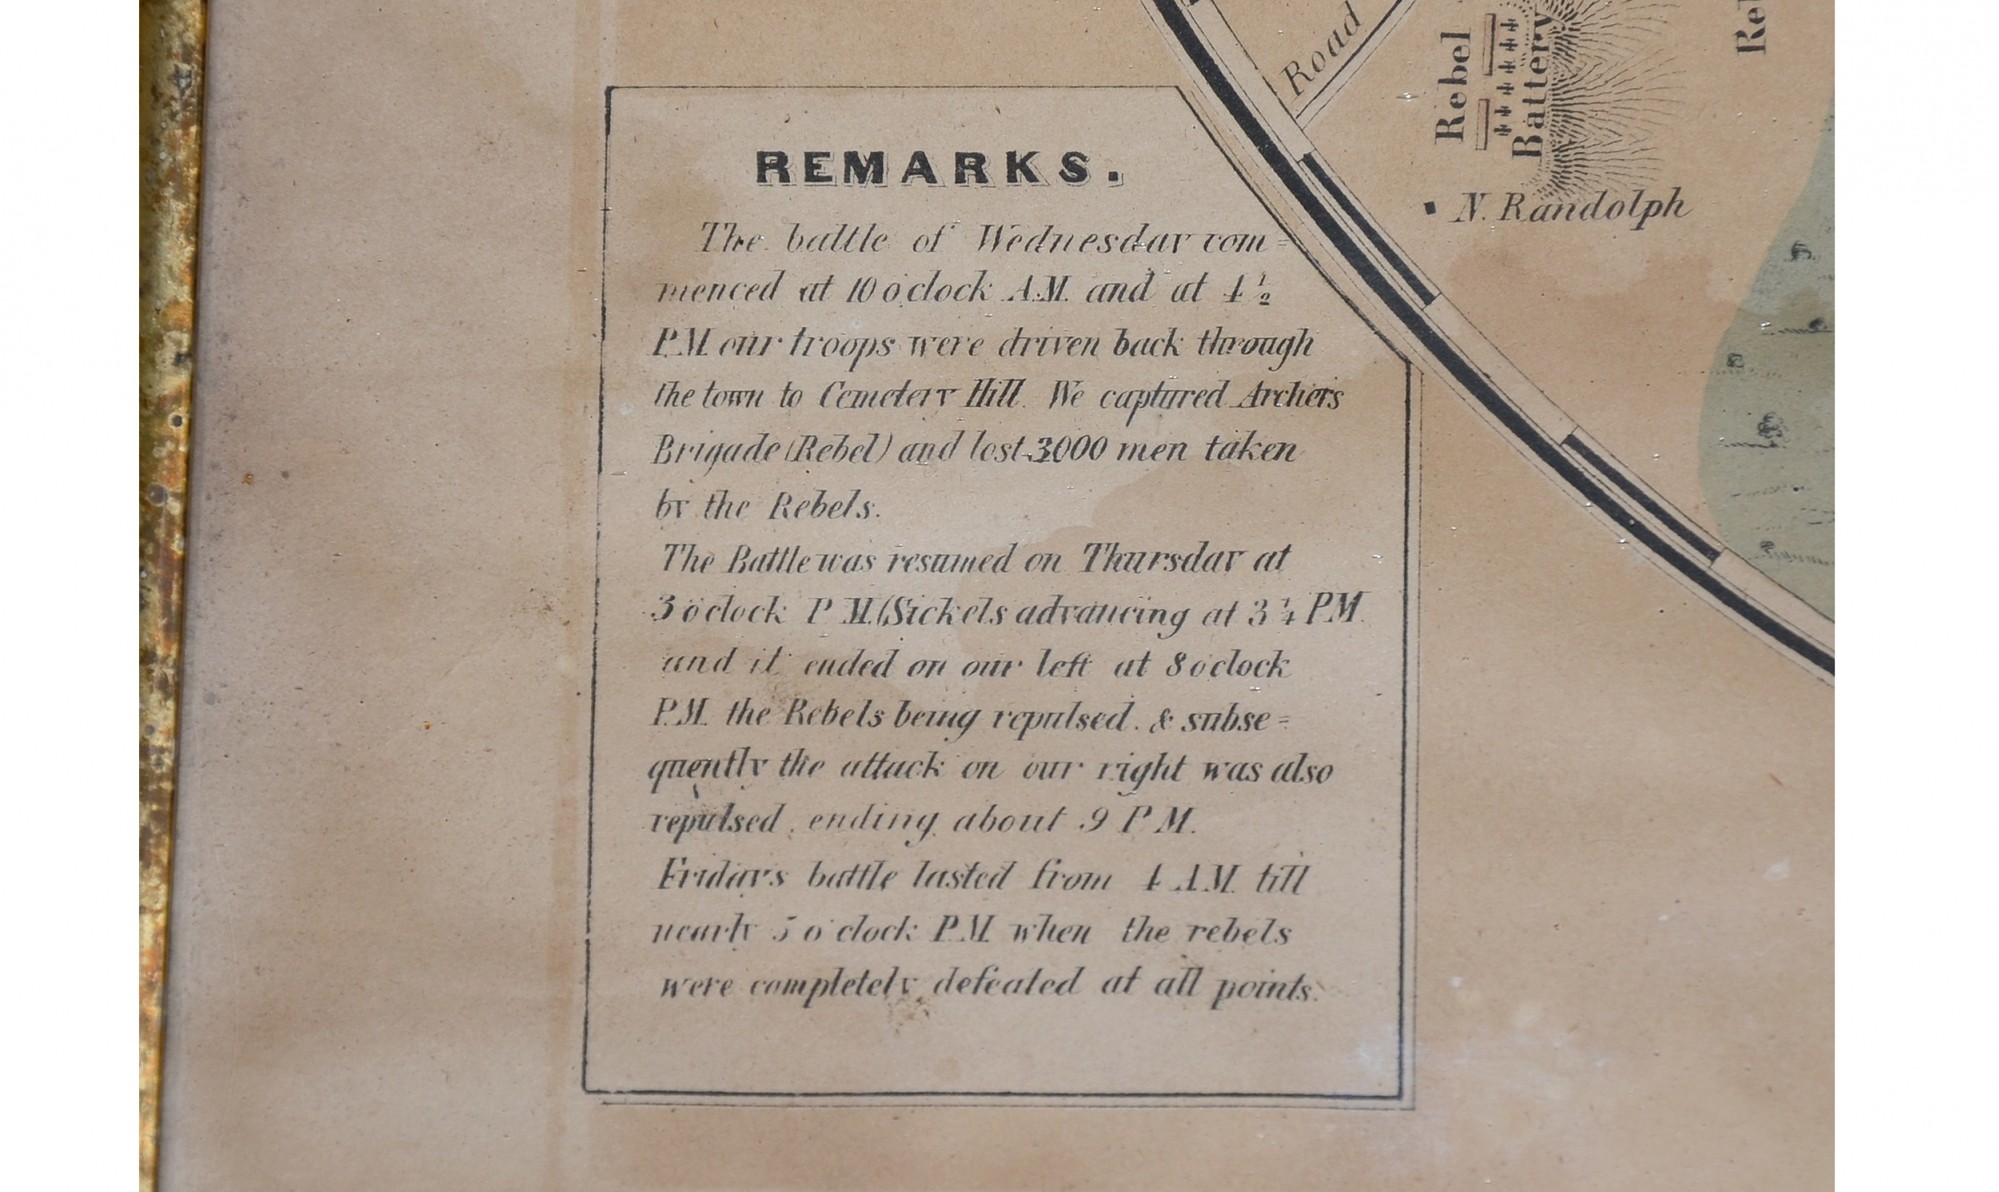 REMARKS.
The battle of Wednesday com=
menced at 10 o'clock A.M. and at 4 1/2
P.M. our troops were driven back through
the town to Cemetery Hill. We captured Archers
Brigade (Rebel) and lost 3000 men taken
by the Rebels.
The Battle was resumed on Thursday at
3 o'clock P.M. (Sickels advancing at 3 1/4 P.M.
and it ended on our left at 8 o'clock
P.M. the Rebels being repulsed. & subse=
quently the attack on our right was also
repulsed, ending about 9 P.M.
Fridays battle lasted from 4 A.M. till
nearly 5 o'clock P.M. when the rebels
were completely defeated at all points.
Road
Rebel
Battery
N. Randolph